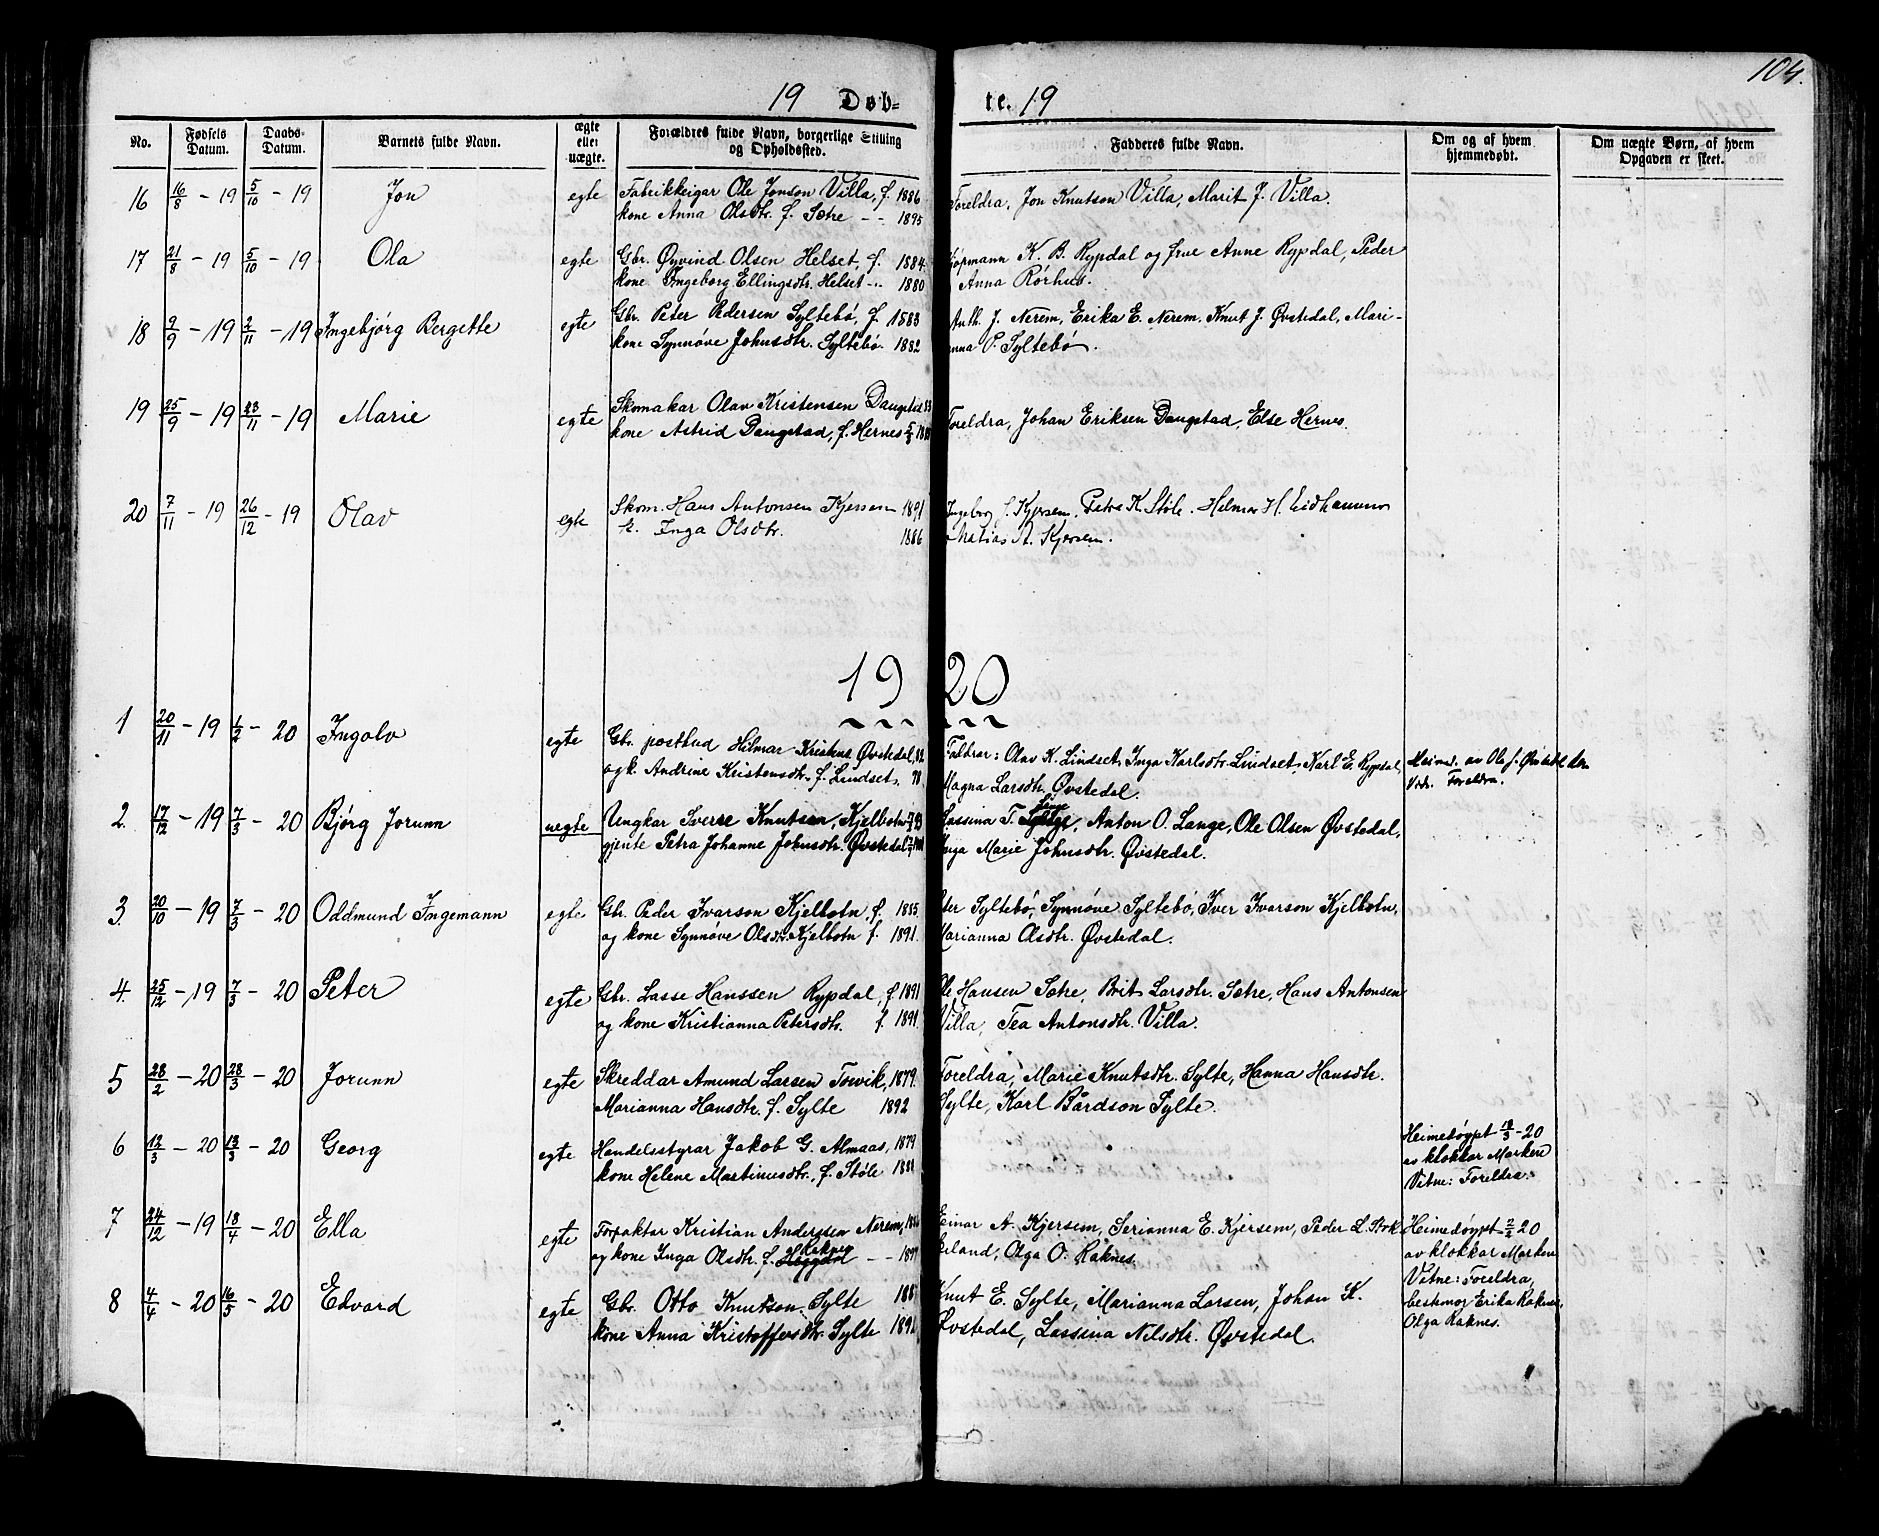 104.
19 Døb-
te. 19
No.
Fødsels Datum.
Daabs-Datum.
Barnets fulde Navn.
ægte eller uægte.
Forældres fulde Navn, borgerlige Stilling og Opholdssted.
Fadderes fulde Navn.
Om og af hvem hjemmedøbt.
Om uægte Børn, af hvem Opgaven er skeet.
16 16/8 - 19 5/10 - 19 Jon egte Fabrikkeigar Ole Jonson Villa, f. 1886 Foreldra, Jon Knutson Villa, Marit J. Villa.
kone Anna Olsdtr. f. Sætre - - 1895
17 21/8 - 19 5/10 - 19 Ola egte Gbr. Øyvind Olsen Helset, f. 1884 Kjøpmann K. B. Rypdal og frue Anne Rypdal, Peder
kone Ingeborg Ellingsdtr. Helset -"- 1880 Anna Rørhus.
18 9/9 - 19 2/11 - 19 Ingebjørg Bergette egte Gbr. Peter Pedersen Syltebø, f. 1583 Anth. J. Nerem, Erika E. Nerem. Knut J. Øvstedal, Mari-
kone Synnøve Johnsdtr. Syltebø. 1882 anna P. Syltebø.
19 25/9 - 19 23/11 - 19 Marie egte Skomakar Olav Kristensen Daugstad Foreldra, Johan Eriksen Daugstad, Else Hernes.
kone Astrid Daugstad, f. Hernes
20 7/11 - 19 26/12 - 19 Olav egte Skom. Hans Antonsen Kjersem 1891 Ingeborg f. Kjersem. Petra K. Støle. Helmer H. Eidhammer
k. Inga Olsdtr. 1886 Matias A. Kjersem.
1920
1 20/11 - 19 1/2 - 20 Ingolv egte Gbr. postbud Hilmar Øvstedal, 82 Faddrar: Olav K. Lindset, Inga Karlsdtr. Lindset, Karl E. Rypdal, av Ole J. Øvstedal
og k. Andrine Kristensdtr. f. Lindset, Magna Larsdtr. Øvstedal. Vitn. Foreldra.
2. 17/12 - 19 7/3 - 20 Bjørg Jorunn uegte Ungkar Sverre Knutsen, Kjelbotn Lassina T. Anton O. Lange, Ole Olsen Øvstedal,
gjente Petra Johanne Johnsdtr. Øvstedal Inga Marie Johnsdtr. Øvstedal.
3. 20/10 - 19 7/3 - 20 Oddmund Ingemann egte Gbr. Peder Ivarson Kjelbotn, f. 1885. Peter Syltebø, Synnøve Syltebø, Iver Ivarson Kjelbotn,
og kone Synnøve Olsdtr. Kjelbotn f. 1891. Marianna Olsdtr. Øvstedal.
4. 25/12 - 19 7/3 - 20 Peter egte Gbr. Lasse Hanssen Rypdal, f. 1891 Ole Hansen Sætre, Brit Larsdtr. Sætre, Hans Antonsen
og kone Kristianna Petersdtr. f. 1891 Villa, Tea Antonsdtr. Villa.
5 28/2 - 20 28/3 - 20 Jorunn egte Skreddar Amund Larsen Torvik, 1879. Foreldra, Marie Knutsdtr. Sylte, Hanna Hansdtr.
Marianna Hansdtr. f. Sylte 1892 Sylte, Karl Bårdson Sylte.
6 12/3 - 20 13/3 - 20 Georg egte Handelsstyrar Jakob G. Almaas, 1879 Heimedøypt 13/3 - 20
kone Helene Martinusdtr., f. Støle av klokkar Marken
Vitne: Foreldra.
7 24/12 - 19 18/4 - 20 Ella egte Forpaktar Kristian Anderssen Nerem, Einar A. Kjersem, Serianna E. Kjersem, Peder L. Stok- Heimedøypt 2/2 20
og kone Inga Olsdtr. f. Raknes - - keland, Olga O. Raknes. av klokkar Marken
Vitne: Foreldra,
bestemor Erika Raknes,
Olga Raknes.
8 4/4 - 20 16/5 - 20 Edvard egte Gbr. Otto Knutson Sylte Knut E. Sylte, Marianna Larsen, Johan K.
kone Anna Kristoffersdtr. Sylte Øvstedal, Lassina Nilsdtr. Øvstedal.